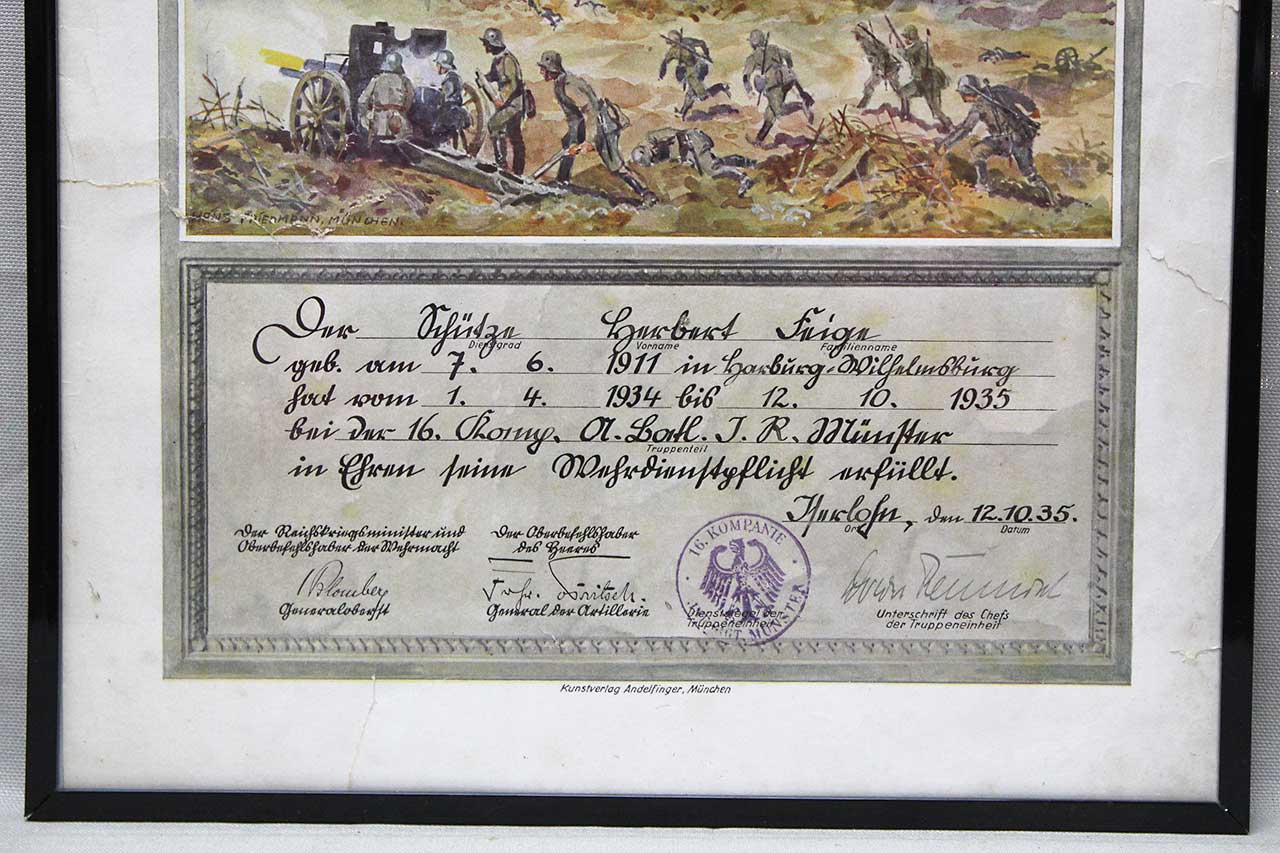 MÜNCHEN.
Der Schütze Herbert Feige
Dienstgrad Vorname Familienname
geb. am 7. 6. 1911 in Harburg-Wilhelmsburg
hat vom 1. 4. 1934 bis 12. 10. 1935
bei der 16. Komp. A. Batl. I. R. Münster
Truppenteil
in Ehren seine Wehrdienstpflicht erfüllt.
Iserlohn, den 12.10.35.
Ort Datum
Der Reichskriegsminister und
Oberbefehlshaber der Wehrmacht
Blomberg
Generaloberst
Der Oberbefehlshaber
des Heeres
Frhr. v. Fritsch.
General der Artillerie
16. KOMPANIE
MÜNSTER
Dienstsiegel der
Truppeneinheit
Unterschrift des Chefs
der Truppeneinheit
Kunstverlag Andelfinger, München